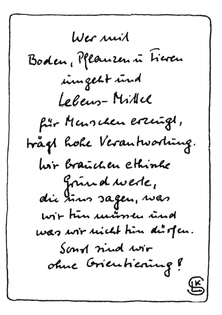 Wer mit
Boden, Pflanzen u Tieren
umgeht und
Lebens-Mittel
für Menschen erzeugt,
trägt hohe Verantwortung.
Wir brauchen ethische
Grundwerte,
die uns sagen, was
wir tun müssen und
was wir nicht tun dürfen.
Sonst sind wir
ohne Orientierung!